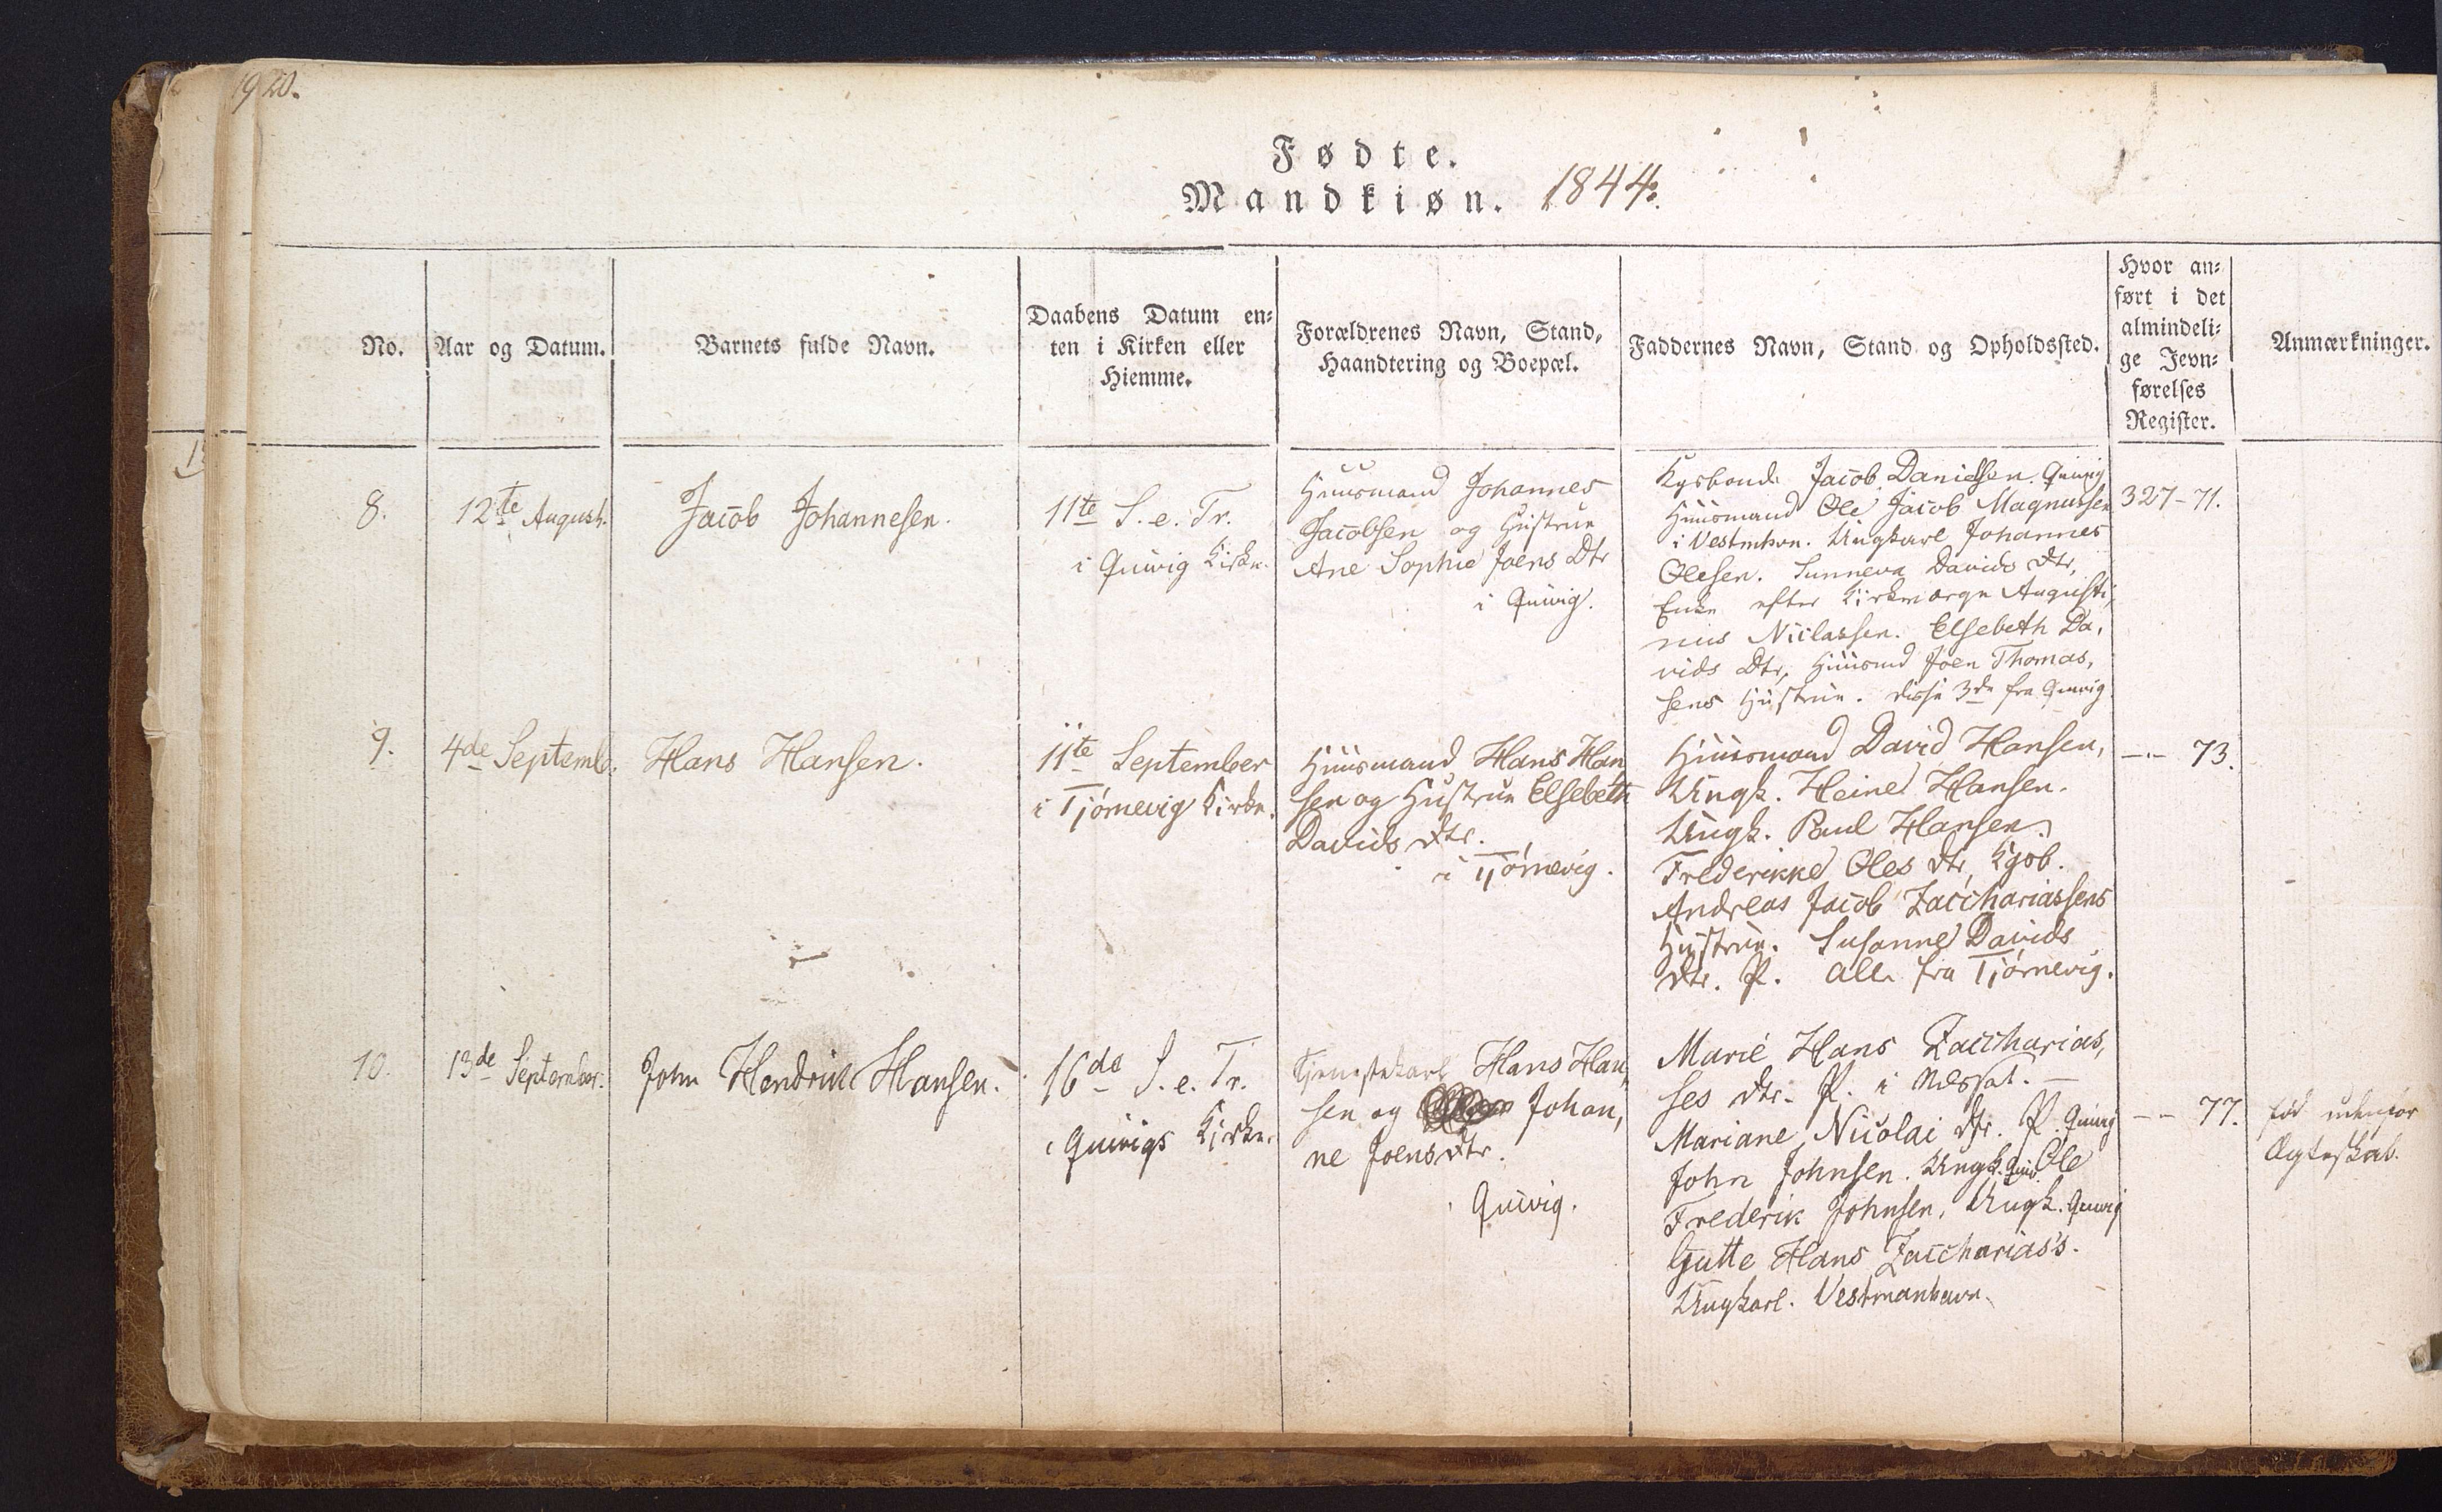 20.
Fødte.
Mandkiøn. 1844.
No.
Aar og Datum.
Barnets fulde Navn.
Daabens Datum en-
ten i Kirken eller
Hiemme.
Forældrenes Navn, Stand,
Haandtering og Boepæl.
Faddernes Navn, Stand og Opholdssted.
Hvor an-
ført i det
almindeli-
ge Jevn-
førelses
Register.
Anmærkninger.
8.
12te August.
Jacob Johannesen.
11te S. e. Tr.
i Quivig Kirke.
Huusmand Johannes
Jacobsen og Hustrue
Ane Sophie Joens Dtr
i Quivig.
Kgsbonde Jacob Danielsen. Quivig
Huusmand Ole Jacob Magnussen
i Vestmhvn. Ungkarl Johannes
Olesen. Sunneva Davids Dtr,
Enke efter Kirkeværge Augusti,
nus Niclassen. Elsebeth Da,
vids Dtr, Huusmd Joen Thomas,
sens Hustrue. disse 3de fra Quivig
327-71.
9.
4de Septembr.
Hans Hansen.
11te September
i Tjörnevig Kirke.
Huusmand Hans Han
sen og Hustrue Elsebeth
Davids Dtr.
i Tjörnevig.
Huusmand David Hansen,
Ungk. Heine Hansen.
Ungk. Paul Hansen.
Frederikke Oles Dtr, Kgsb.
Andreas Jacob Zacchariassens
Hustrue. Susanne Davids
Dtr. P. Alle fra Tjörnevig.
-.- 73.
10.
13de September.
John Hendrik Hansen.
16de S. e. Tr.
i Quivigs Kirke.
Tjenestekarl Hans Han,
sen og Johan,
ne Joensdtr.
Quivig.
Marie Hans Zaccharias,
ses Dtr. P. i
Mariane Nicolai Dtr. P. Quivig
John Johnsen. Ungk. Quiv. Ole
Frederik Johnsen, Ungk. Quivig
Gutte Hans Zaccharias's.
Ungkarl. Vestmanhavn.
-- 77.
fød udenfor
Ægteskab.